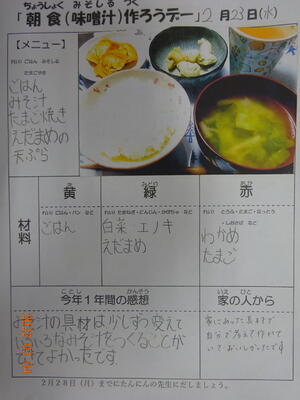 ちょうしょく みそしる つく
「 朝食(味噌汁)作ろうデー」2月23日(水)
【メニュー】
れい) ごはん みそしる
たまごやき
ごはん
みそ汁
たまご焼き
えだまめの
天ぷら
材料
黄 緑 赤
れい) ごはん・パン など
れい) たまねぎ・にんじん・かぼちゃ など
れい) とうふ・たまご・なっとう
・しおさば など
ごはん
白菜 エノキ
えだまめ
わかめ
たまご
ことし かんそう いえ ひと
今年1年間の感想 家の人から
みそ汁の具材は少しずつ変えて
いろいろなみそ汁をつくることが
できてよかったです
家にあった具材で
自分で考えて作れて
いて おいしかったです
2月28日(月)までにたんにんの先生にだしましょう。